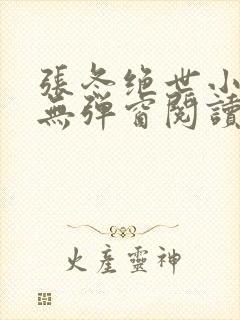 張冬绝世小
無彈窗閱讀
火產靈神